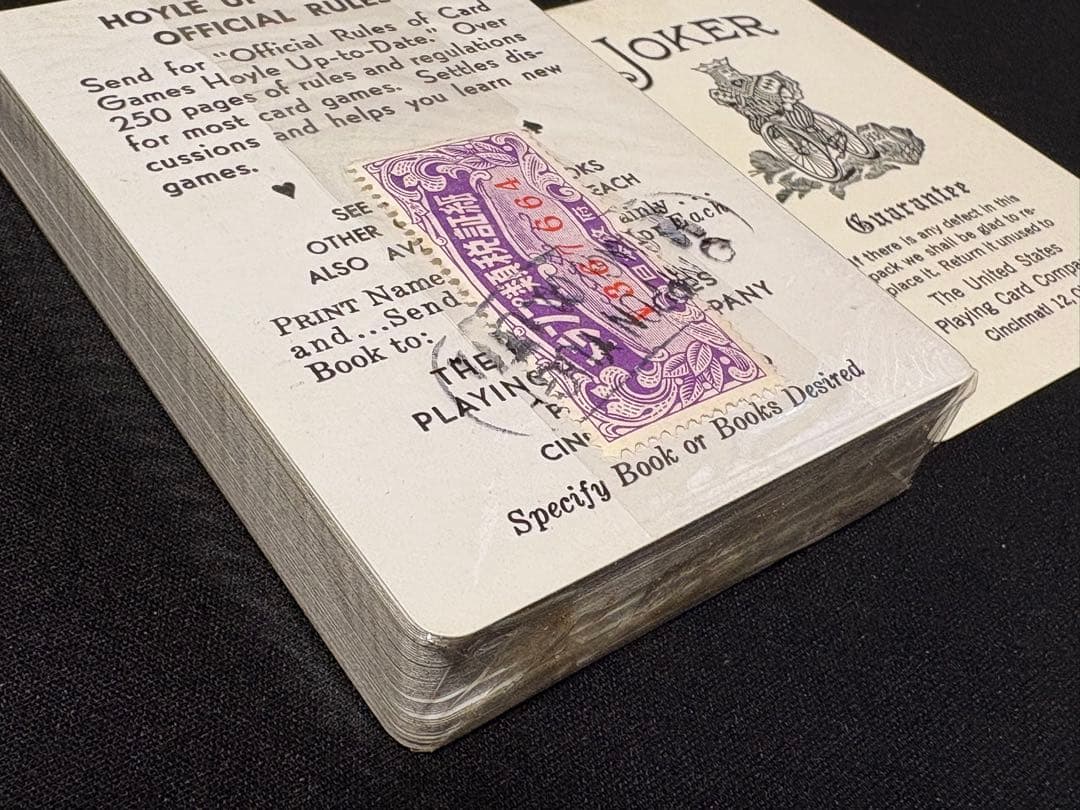 HOYLE UP
OFFICIAL RULES
Send for "Official Rules of Card
Games Hoyle Up-to-Date." Over
250 pages of rules and regulations
for most card games. Settles dis-
cussions and helps you learn new
games.
SEE
OTHER
ALSO
EACH
PRINT Name
and...Send
Book to:
THE
PLAYING
CIN
Specify Book or Books Desired.
類税証紙
1867664
JOKER
Guarantee
If there is any defect in this
pack we shall be glad to re-
place it. Return it unused to
The United States
Playing Card Compa
Cincinnati 12,